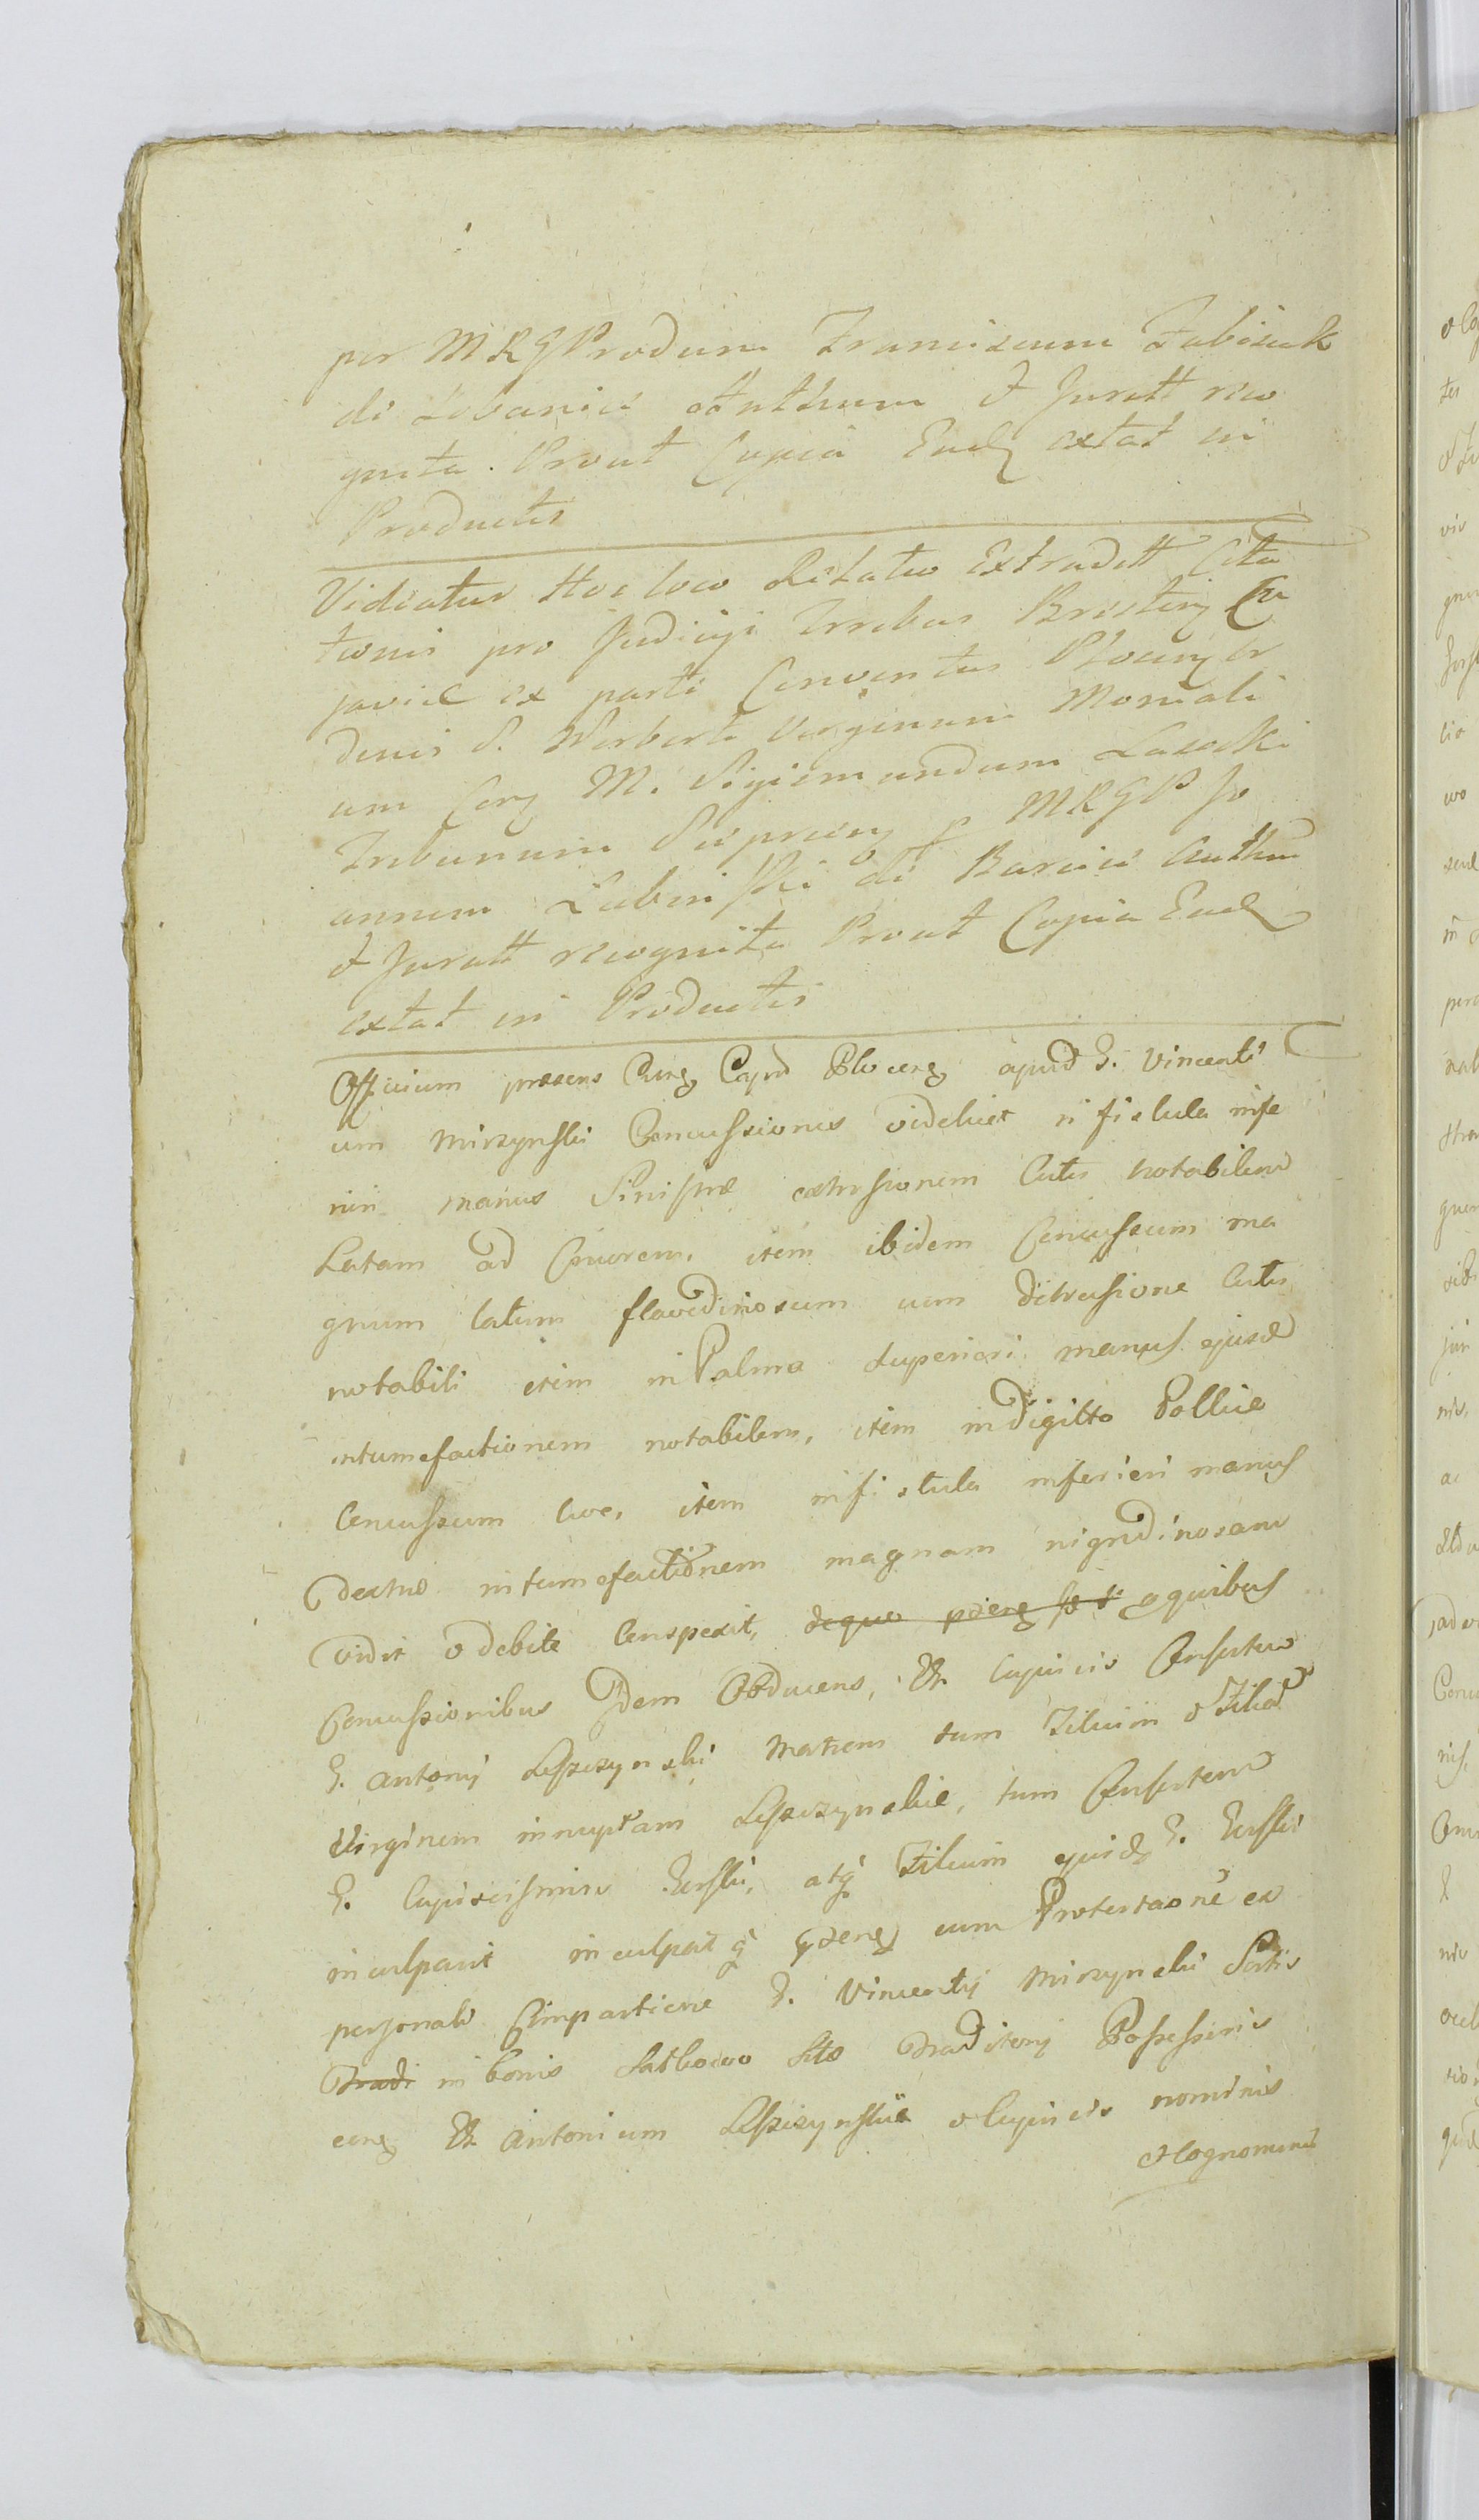 per MRGProdum Franciscum Fabisiak
de Libanice Authum & Juratt reco
gnita. Prout Copia Ead extat in
Productis
Videatur Hoc loco Relatio Extraditt Cita
tionis pro Judicijs Trrebus Bresten Cu
javie ex parte Conventus Plocen Or
dinis S. Norberti Virginum Moniali
um Con M. Sigismundum Lasocki
Tribunum Sierpcen p MRGP Jo
annem Lubinski de Barcice Authum
& Juratt recognita Prout Copia Ead
extat in Productis
Officium praesens Cap Plocens apud G. Vincenti
um Mirzynski Concussiones videlicet in fistula infe
riori manus Sinistrae extrusionem Cutis notabilem
Latam ad Cruorem. item ibidem Concussum ma
gnum latum flavedinosum cum detrusione Cutis
notabili item in Palma superiori manus ejusd
intumefactionem notabilem, item in digitto Pollice
Concussum item in fistula inferiori manus
dextrae intumefactionem magnam nigredinosam
vidit & debite Conspexit, de quo prens a quibus
Concussionibus Idem Obducens, Consortem
G. Antonij Leszczynski Matrem tum Filium & Filiã
Virginem innuptam Leszczynskie, tum Consortem
G. atq Filium ejusd G.
inculpavit inculpat q praens cum Protestaone ex
personali Comparitione G. Vincentij Mirzynski Sortis
Tradi in bonis Sto Traditorij Possessoris
Antonium Leszczynskie nominis
& Cognominis